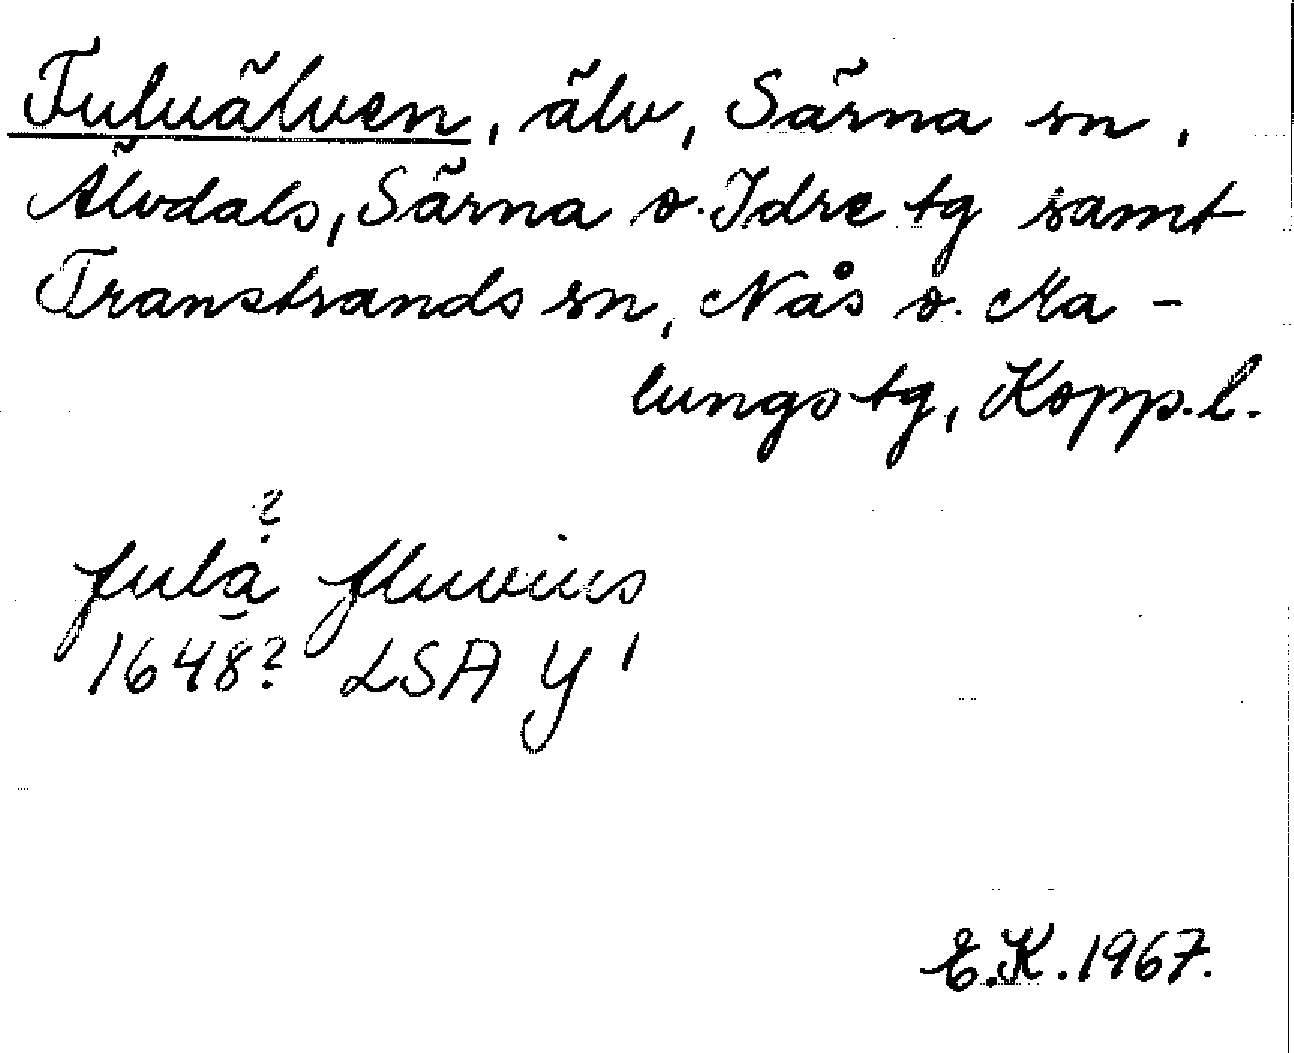 Fuluälven, älv, Särna sn,
Älvdals, Särna o. Idre tg samt
Transtrands sn, Nås o. Ma-
lungs tg, Kopp. l.
?
fula fluvius
1648? LSA Y 1
E.K. 1967.